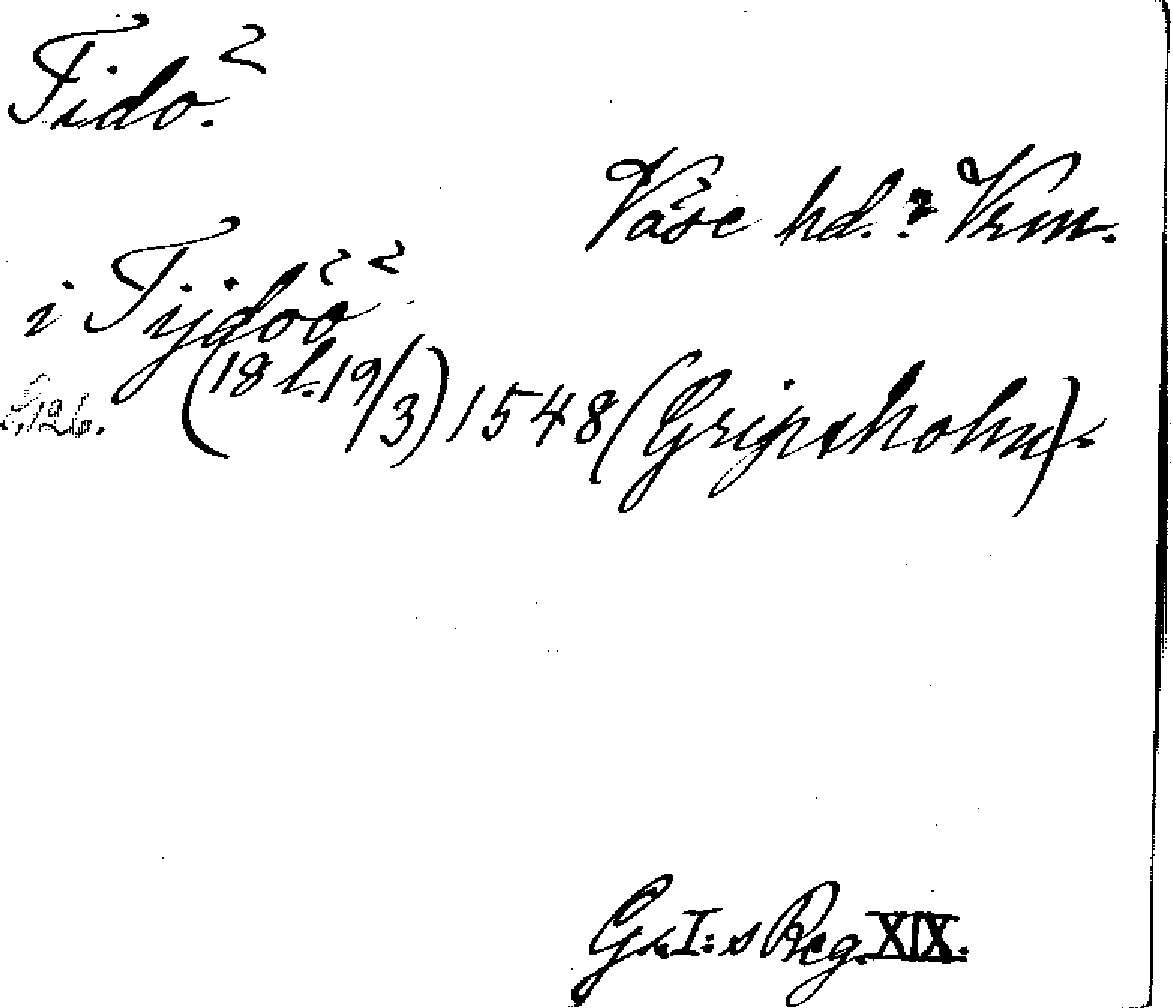 Tidö.
Väse hd.? Vrm.
i Tijdöö
s. 126. (18 l. 19/3) 1548 (Gripsholm).
G. I:s Reg. XIX.